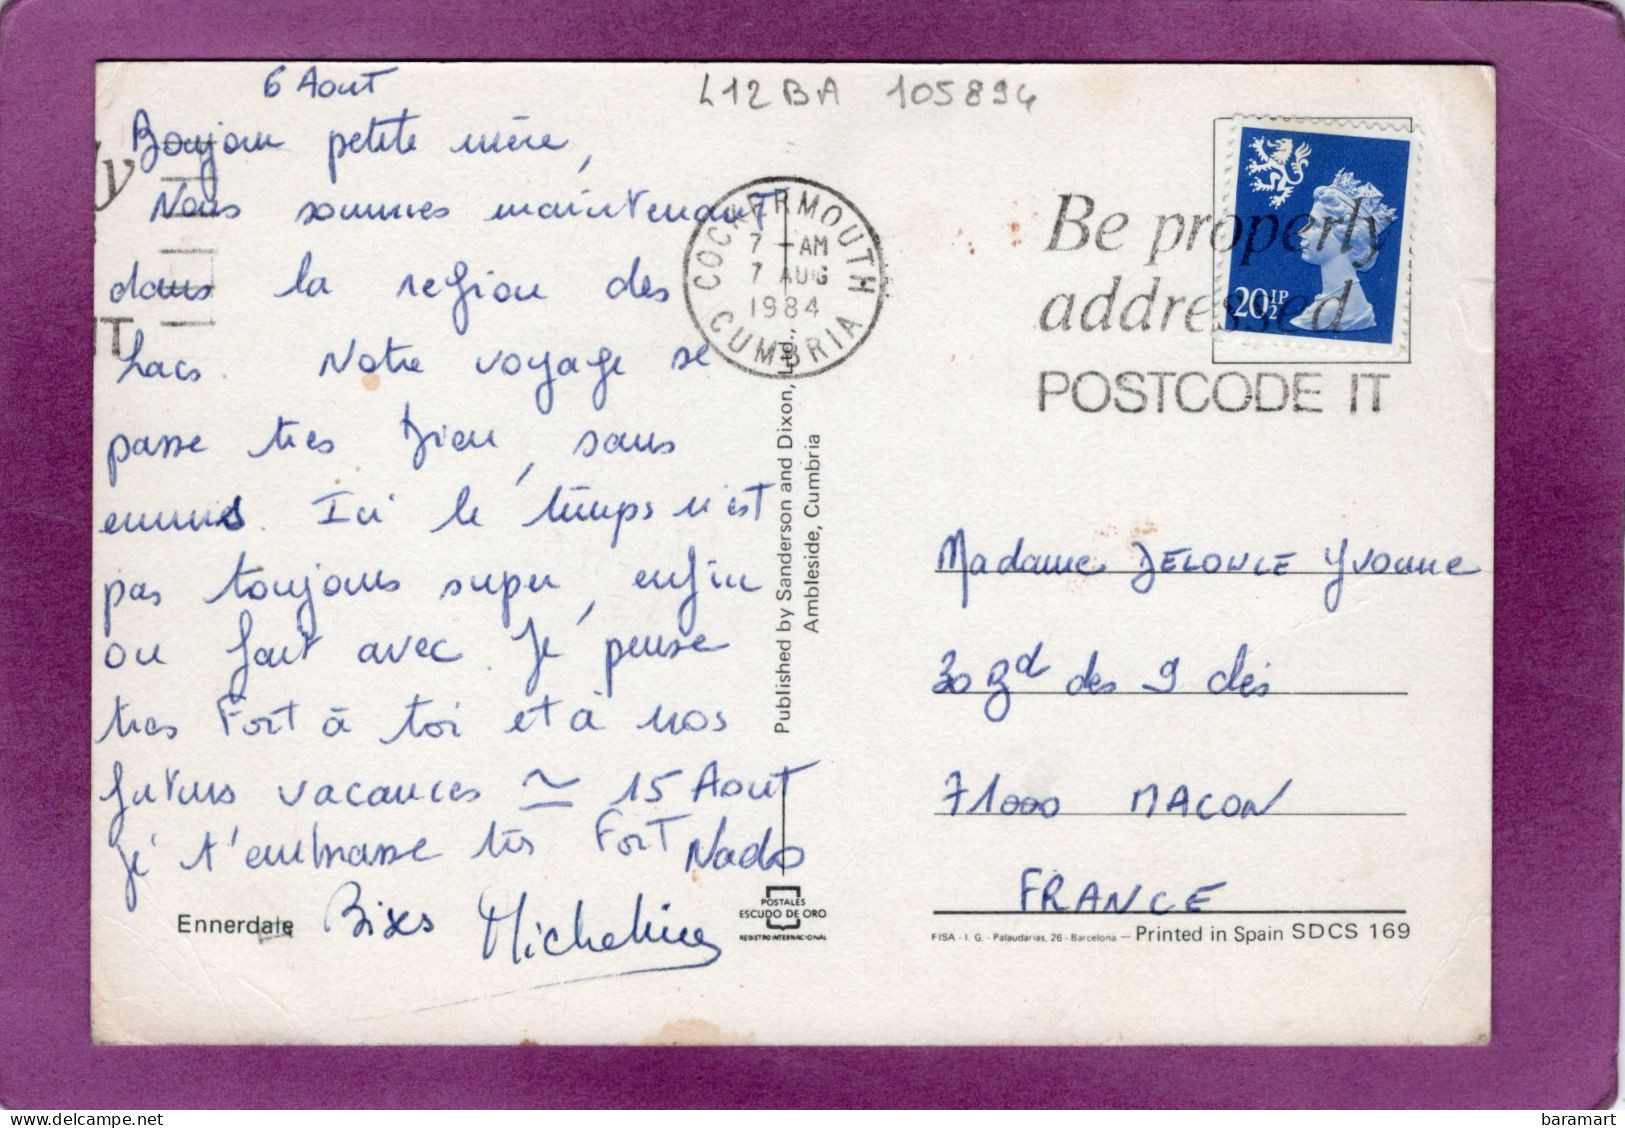 6 Aout
Bonjour petite mère,
Nous sommes maintenant
dans la region des
Lacs. Notre voyage se
passe tres bien, sans
ennuis. Ici le temps n'est
pas toujours super, enfin
on fait avec. Je pense
tres Fort à toi et à nos
futurs vacances ≃ 15 Aout
Je t'embrasse très Fort
Nado
Bises Micheline
Ennerdale
L12BA 105894
COCKERMOUTH
7 - AM
7 AUG
1984
CUMBRIA
Published by Sanderson and Dixon, Ltd.,
Ambleside, Cumbria
POSTALES
ESCUDO DE ORO
REGISTRO INTERNACIONAL
Be properly
addressed
POSTCODE IT
20½P
Madame Yvonne
30 Bd des 9 clés
71000 MACON
FRANCE
FISA - I. G. - Palaudarias, 26 - Barcelona — Printed in Spain SDCS 169
ly
T
delcampe.net
baramart